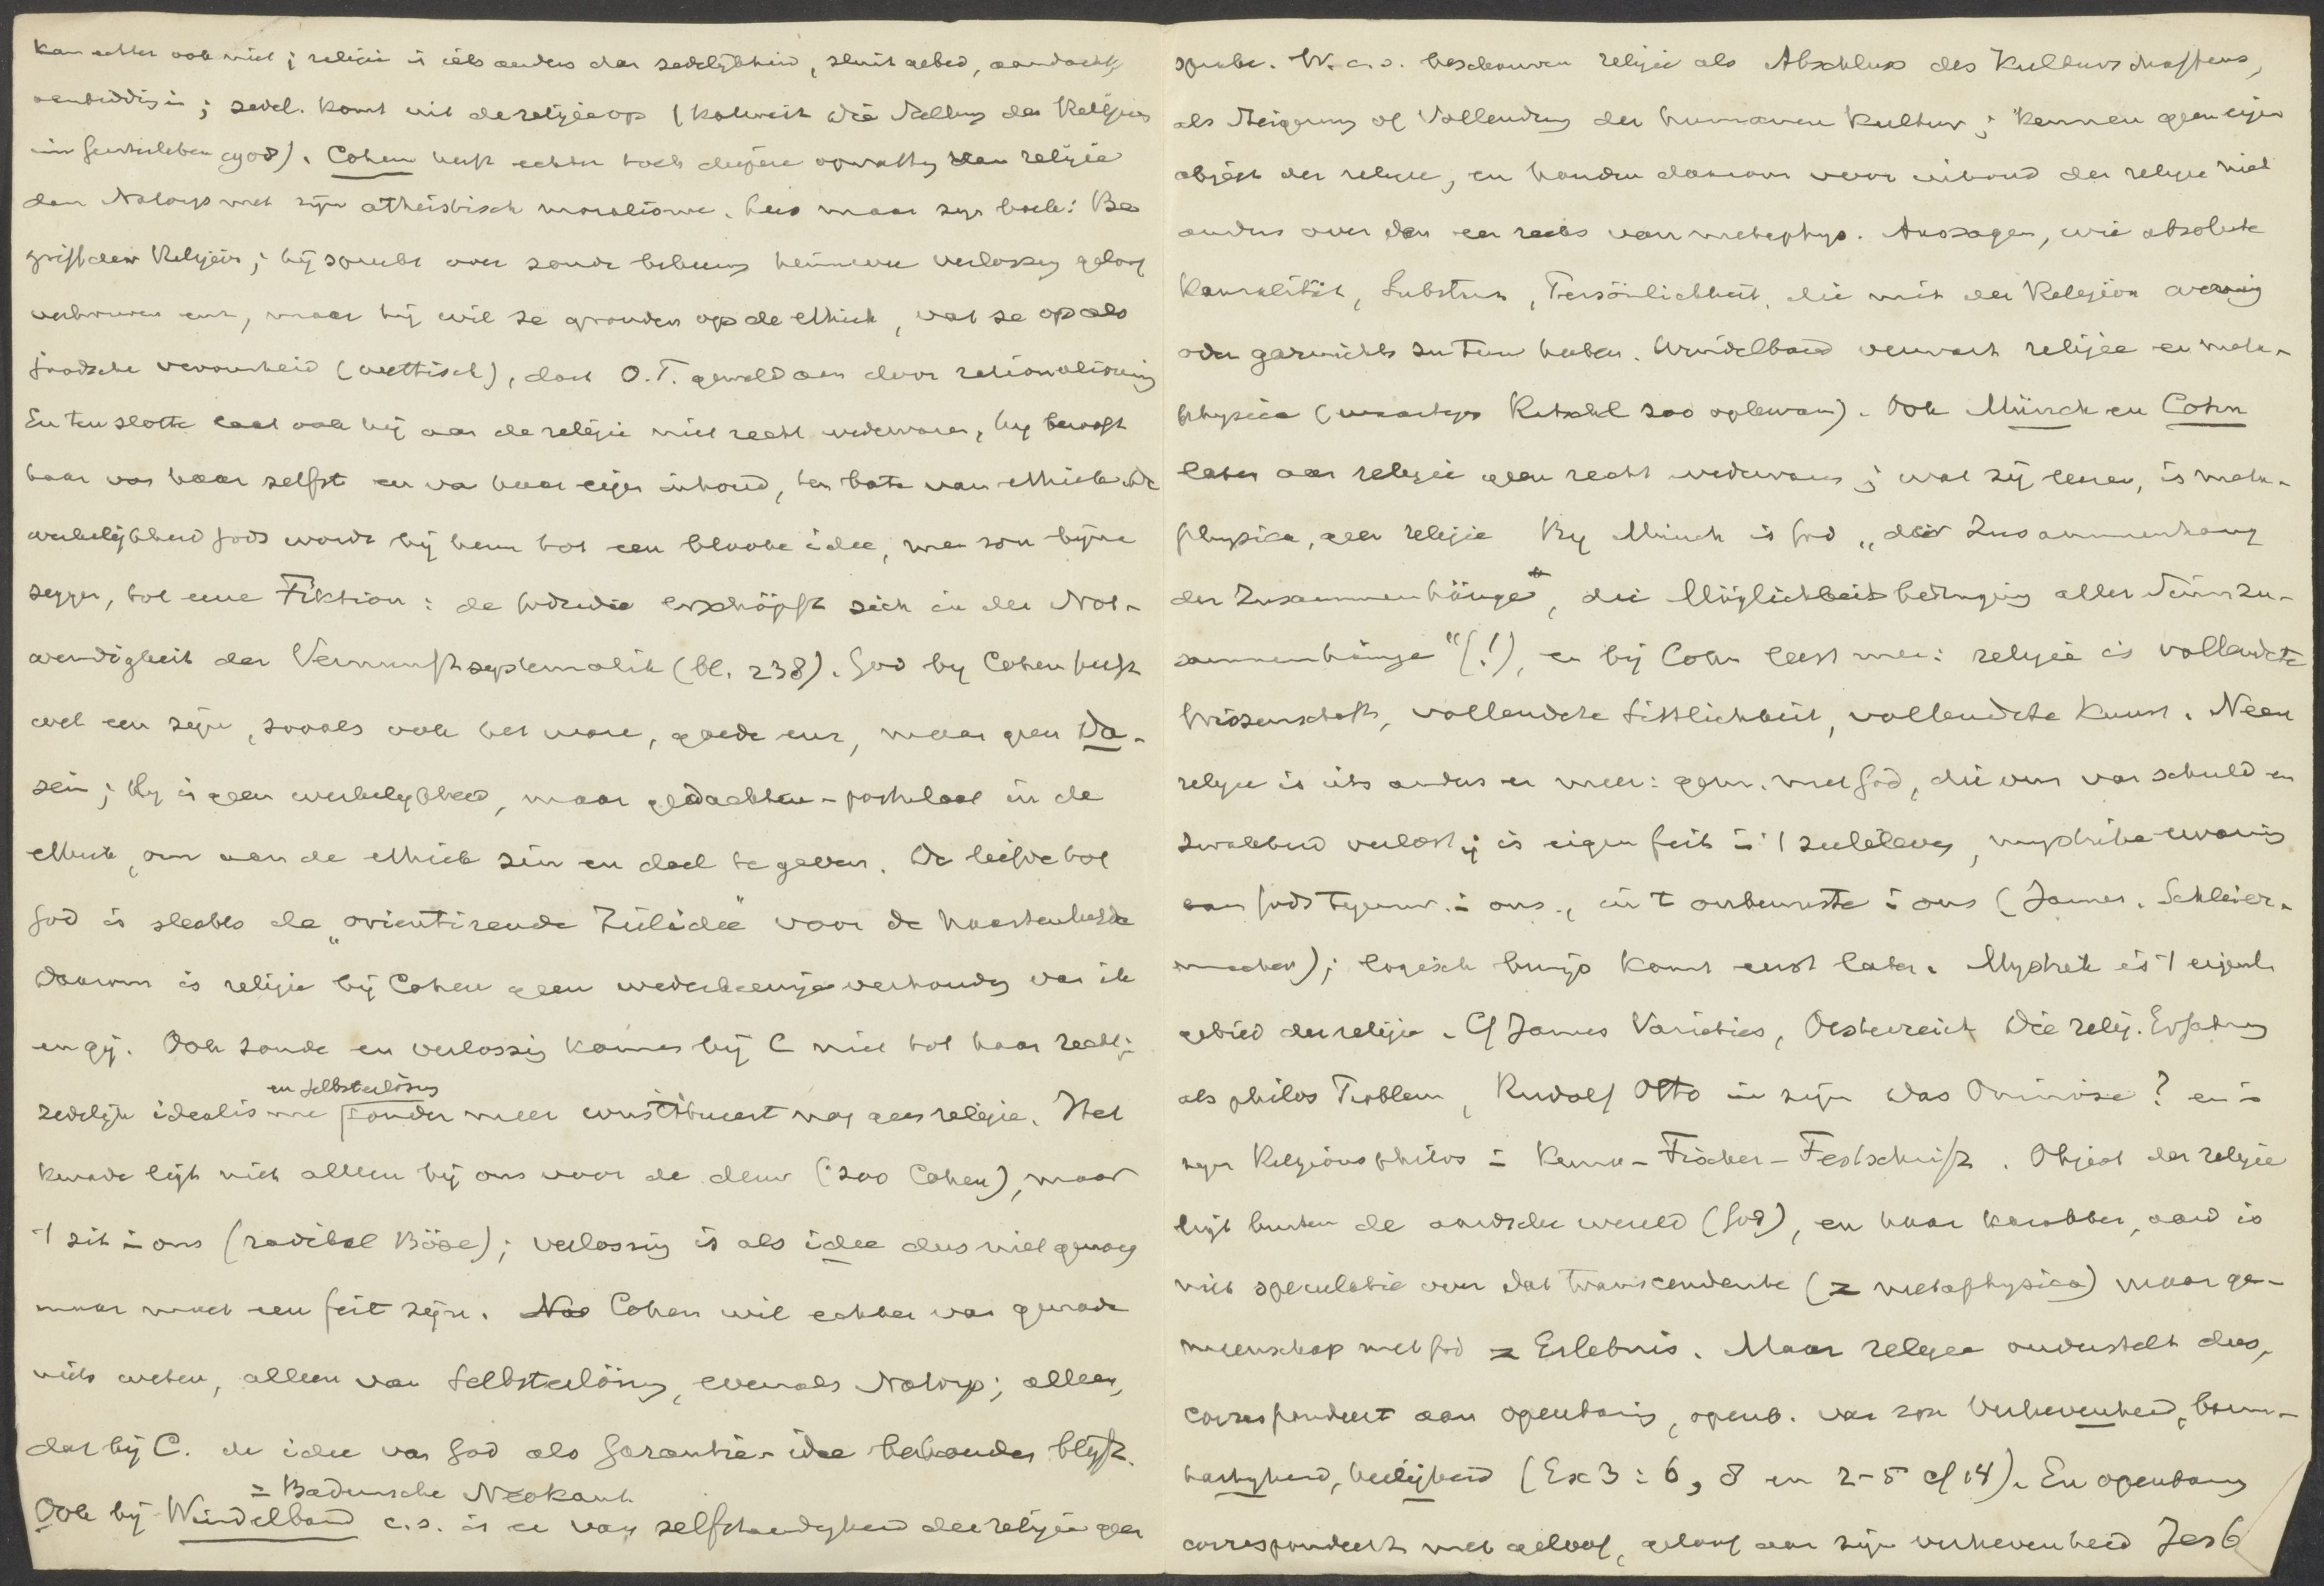 kan echter ook niet; religie is iets anders dan zedelijkheid, sluit gebed, aandacht,
aanbidding in; zedel. komt uit de religie op (Kalweit Die Stellung der Religion
im Geistesleben 1908). Cohen heeft echter toch diepere opvatting van religie
dan Natorp met zijn atheistisch moralisme. Lees maar zijn boek: Be
griff der Religion; hij spreekt over zonde bekeering verlossing geloof
vertrouwen enz, maar hij wil ze gronden op de ethiek, vat ze op als
joodsche vroomheid (wettisch), doet O.T. geweld aan door rationaliseering
En ten slotte laat ook hij aan de religie niet recht wedervaren, hij berooft
haar van haar zelfst en van haar eigen inhoud, ten bate van ethiek. De
werkelijkheid Gods wordt bij hem tot een bloote idee, men zou bijna
zeggen, tot eene Fiktion: de Godsidee erschöpft sich in der Not-
wendigkeit der Vernunftsystematik (bl. 238). God bij Cohen heeft
wel een zijn, zooals ook het ware, goede enz, maar geen Da-
sein; Hij is geen werkelijkheid, maar gedachten-postulaat in de
ethiek, om aan de ethiek zin en doel te geven. De liefde tot
God is slechts de „orientirende Zielidee" voor de naastenliefde
Daarom is religie bij Cohen geen wederkeerige verhouding van ik
en gij. Ook zonde en verlossing komen bij C niet tot haar recht;
zedelijk idealisme en Selbsterlösung zonder meer constitueert nog geen religie. Het
kwade ligt niet alleen bij ons voor de deur (zoo Cohen), maar
't zit in ons (radikal Böse); verlossing is als idee dus niet genoeg
maar moet een feit zijn. Cohen wil echter van genade
niets weten, alleen van Selbsterlösung, evenals Natorp; alleen,
dat bij C. de idee van God als Garantie-idee behouden blijft.
= Badensche Neokant.
Ook bij Windelband c.s. is er van zelfstandigheid der religie geen
sprake. W. c.s. beschouwen religie als Abschluss des Kulturschaffens,
als Steigerung of Vollendung der humanen Kultur; kennen geen eigen
object der religie, en houden daarom voor inhoud der religie niet
anders over dan een reeks van metaphys. Aussagen, wie absolute
Kausalität, Substanz, Persönlichkeit, die mit der Religion wenig
oder garnichts zu tun haben. Windelband verwart religie en meta-
physica (waartegen Ritschl zoo opkwam). Ook Münch en Cohn
laten aan religie geen recht wedervaren; wat zij leeren, is meta-
physica, geen religie Bij Münch is God „der Zusammenhang
der Zusammenhänge, die Möglichkeitsbedingung aller Sinnzu-
sammenhänge" (!), en bij Cohn leest men: religie is vollendete
Wissenschaft, vollendete Sittlichkeit, vollendete Kunst. Neen
religie is iets anders en meer: gem. met God, die ons van schuld en
zwakheid verlost; is eigen feit in 't zieleleven, mystieke ervaring
van Gods tegenw. in ons, in 't onbewuste in ons (James. Schleier-
macher); logisch bewijs komt eerst later. Mystiek is 't eigenl.
gebied der religie. Cf James Varieties, Oesterreich Die relig. Erfahrung
als philos Problem, Rudolf Otto in zijn Das Ominöse? en in
zijn Religionsphilos in Kuno-Fischer-Festschrift. Object der religie
ligt buiten de aardsche wereld (God), en haar karakter, aard is
niet speculatie over dat transcendente (= metaphysica) maar ge-
meenschap met God = Erlebnis. Maar religie onderstelt dus,
correspondeert aan openbaring, openb. van zijn Verhevenheid, barm-
hartigheid, heiligheid (Ex 3:6, 8 en 2-5 cf 14). En openbaring
correspondeert met geloof, geloof aan zijn verhevenheid Jes 6